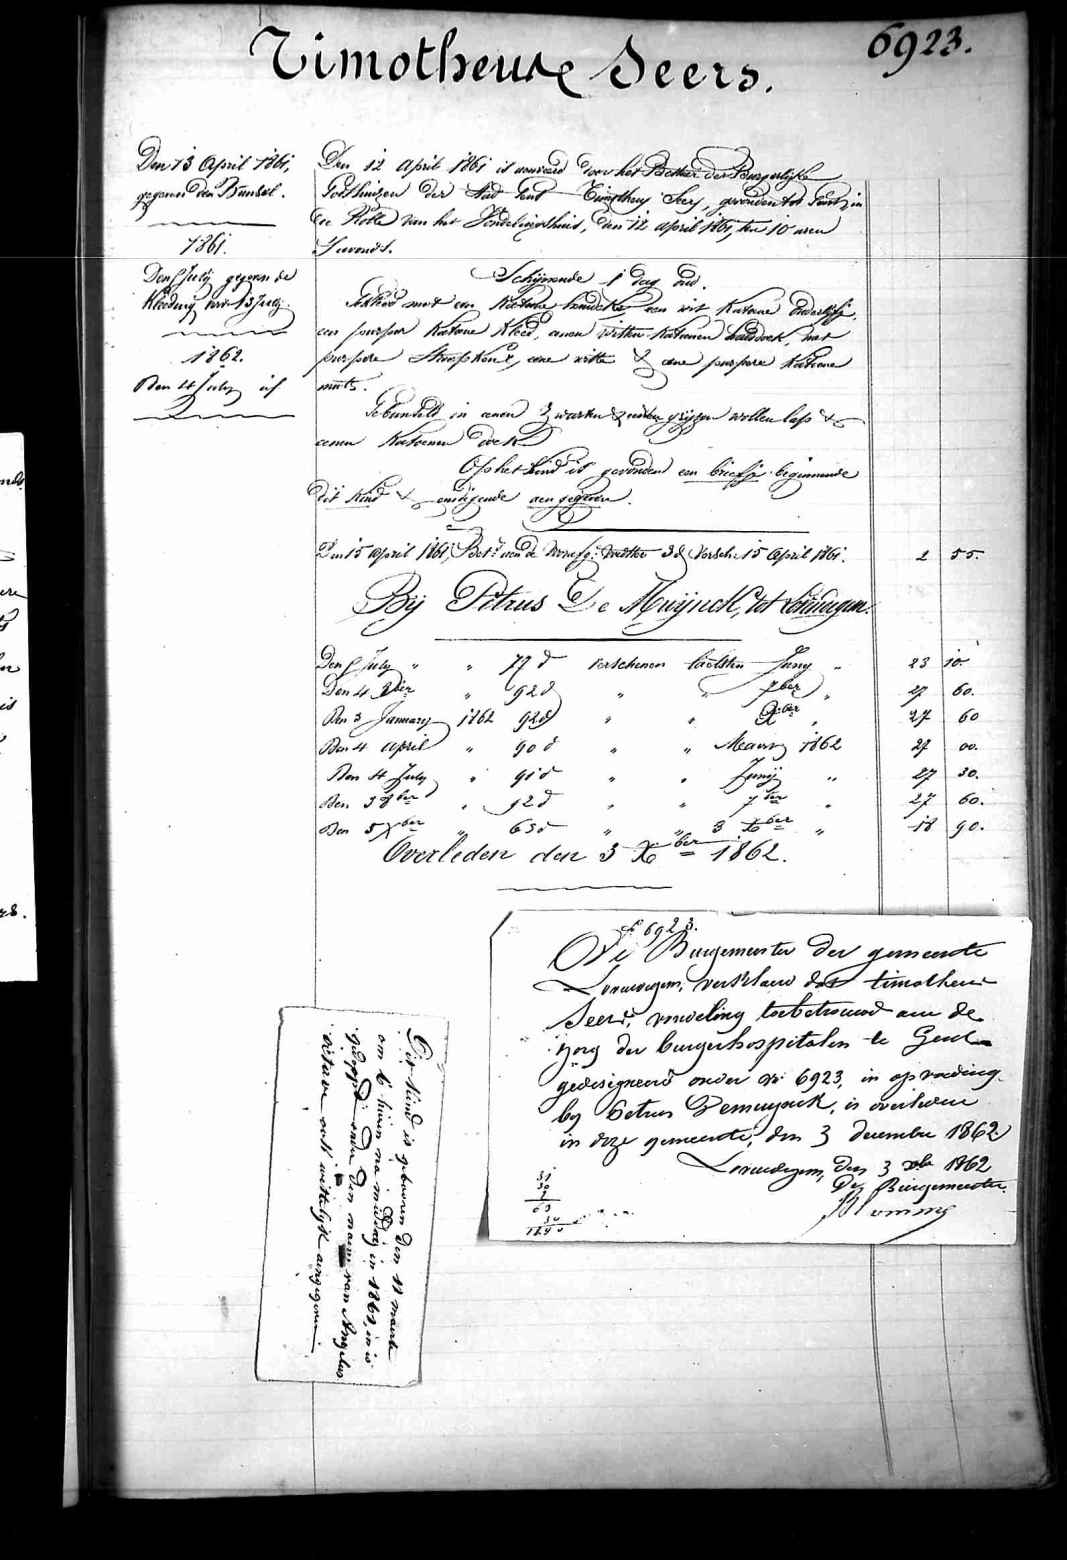 6923.
Timotheus Seers.
Den 13 April 1861,
gegeven den Bunsel.
1861.
Den 5 July gegeven de
kleeding
1862.
Den 4 July id
Den 12 April 1861 is aenveerd door het Bestier der Burgerlijke
Godshuizen der Stad Gend Timotheus Seers, gevonden tot Gent, in
de Rolle van het Vondelingshuis, den 12 april 1861, ten 10 uren
S'avonds.
Schijnende 1 dag oud.
Gekleed met een Katoene hemdeke, een wit Katoene
een purper Katoene Kleed, eenen witten Katoenen halsdoek, met
purpere, eene witte & eene purpere Katoene
muts.
Gebunseld in eenen zwarten & grijzen wollen laps &
eenen Katoenen doek
Op het Kind is gevonden een briefje beginnende
dit Kind & eindigende aengegeven.
Den 15 April 1861, Versch. 15 April 1861. 2 55.
Bij Petrus De Muijnck, tot Lovendegem.
Den 5 July " " 77 d verschenen laetsten Juny " 23 10
Den 4 8ber " 92 d " " 7ber " 27 60.
Den 3 January 1862 92 d " " Xber " 27 60
Den 4 April " 90 d " " Meart 1862 27 00.
Den 4 July " 91 d " " Junij " 27 30.
Den 3 8ber " 92 d " " 7ber " 27 60.
Den 5 Xber " 63 d " " 3 Xber " 18 90.
Overleden den 3 Xber 1862.
N 6923.
De Burgemeester der gemeente
Lovendegem, verklaere dat timotheus
Seers, vondeling toebetrouwd aen de
zorg der burgerhospitalen te Gend
gedesigneerd onder No 6923, in opvoeding
by Petrus Demuynck, is overleden
in deze gemeente, den 3 december 1862
Lovendegem, den 3 xbr 1862
De Burgemeester
Dit kind is gebooren den 11 maerte
om 6 huren na middag in 1861, en is
gedoopt onder den naem van Angelus
octave ook wettelijk aengegeven